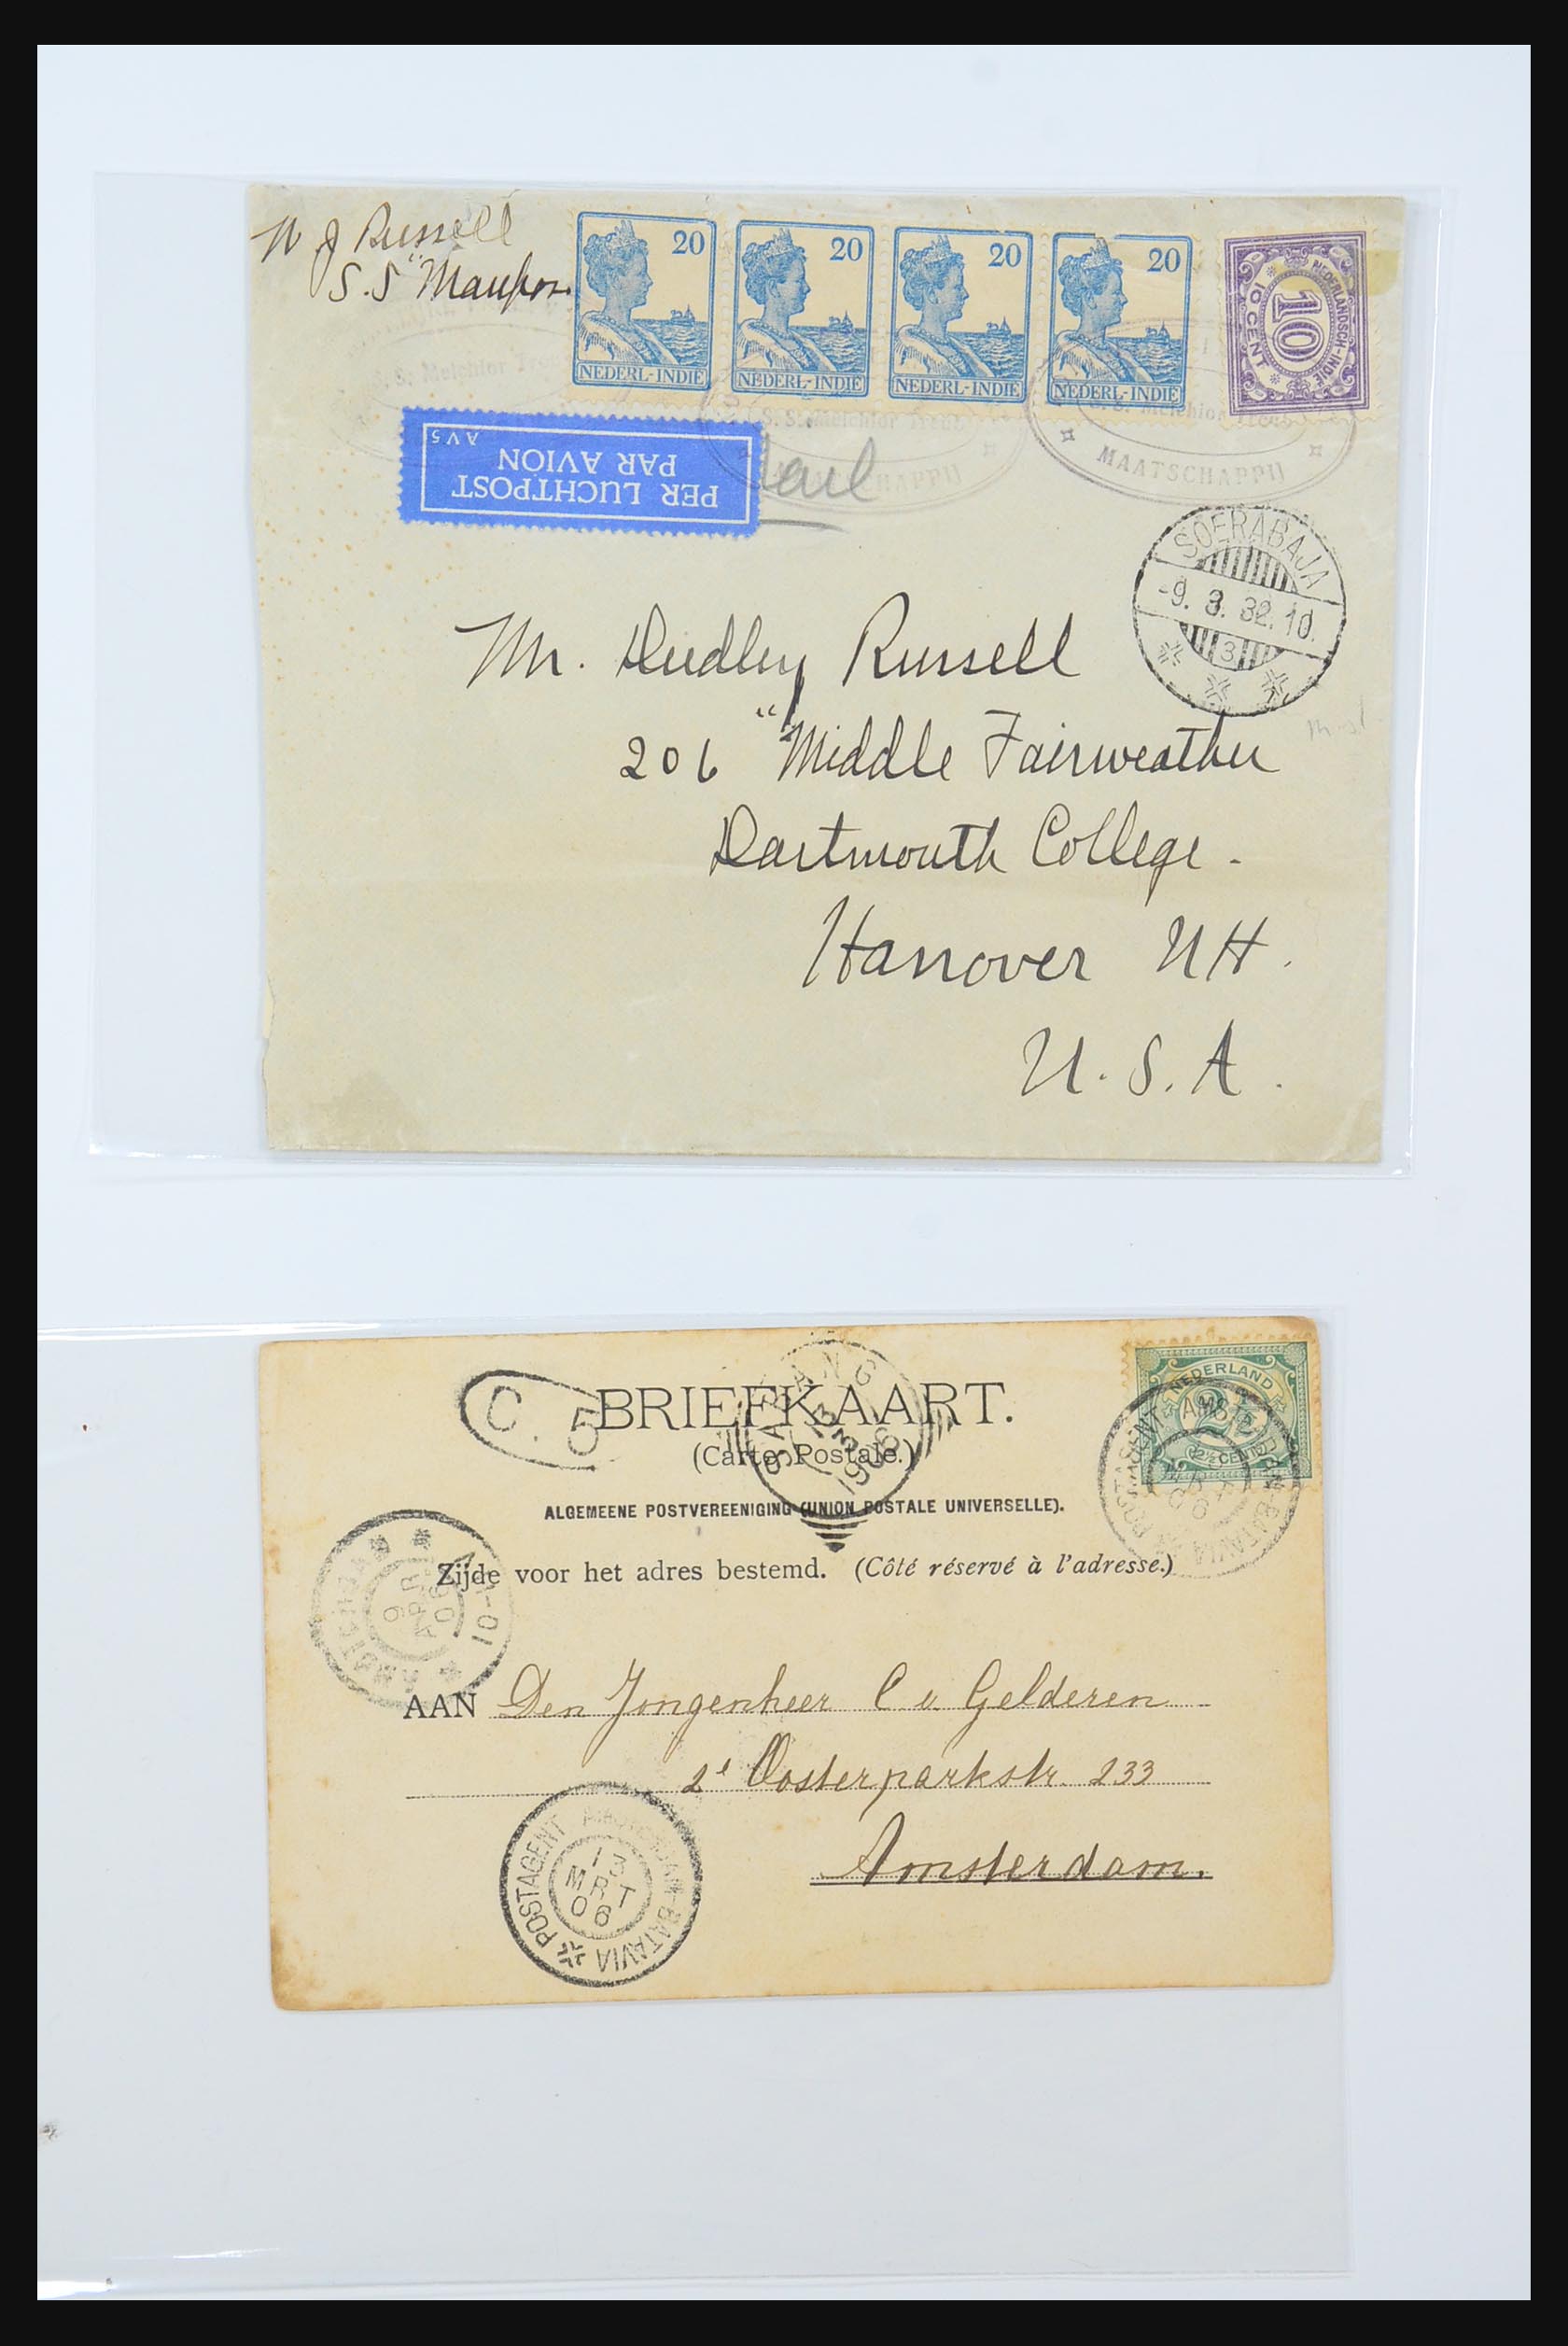 W J Russell
S.S "
20
20
20
20
NEDERL-INDIE
NEDERL-INDIE
NEDERL-INDIE
NEDERL-INDIE
NEDERLANDSCH-INDIE
10
10 CENT
S.S. Melchior Treub
S.S. Melchior Treub
S.S. Melchior Treub
MAATSCHAPPIJ
MAATSCHAPPIJ
PER LUCHTPOST
PAR AVION
AV5
SOERABAJA
-9. 3. 32. 10.
3
Mr. Dudley Russell
206 "Middle Fairweather
Dartmouth College.
Hanover NH.
U.S.A.
C. 5
BRIEFKAART.
(Carte Postale.)
ALGEMEENE POSTVEREENIGING (UNION POSTALE UNIVERSELLE).
Zijde voor het adres bestemd. (Côté réservé à l'adresse.)
NEDERLAND
2½
2½ CENT
POSTAGENT
BATAVIA
13
3
1906
AMSTERDAM
9
APR
06
AAN Den Jongenheer C v. Gelderen
2e Oosterparkstr. 233
Amsterdam.
POSTAGENT AMSTERDAM-BATAVIA
13
MRT
06